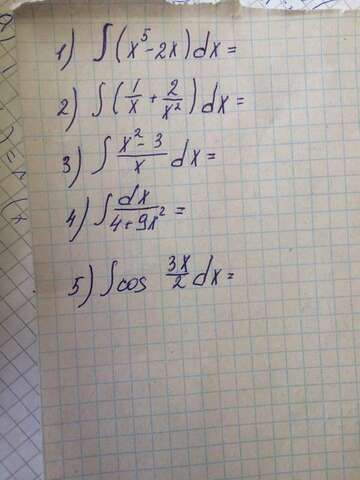 1) ∫(x⁵-2x)dx=
2) ∫(1/x + 2/x²)dx=
3) ∫ (x²-3)/x dx=
4) ∫ dx/(4+9x²) =
5) ∫cos 3x/2 dx=